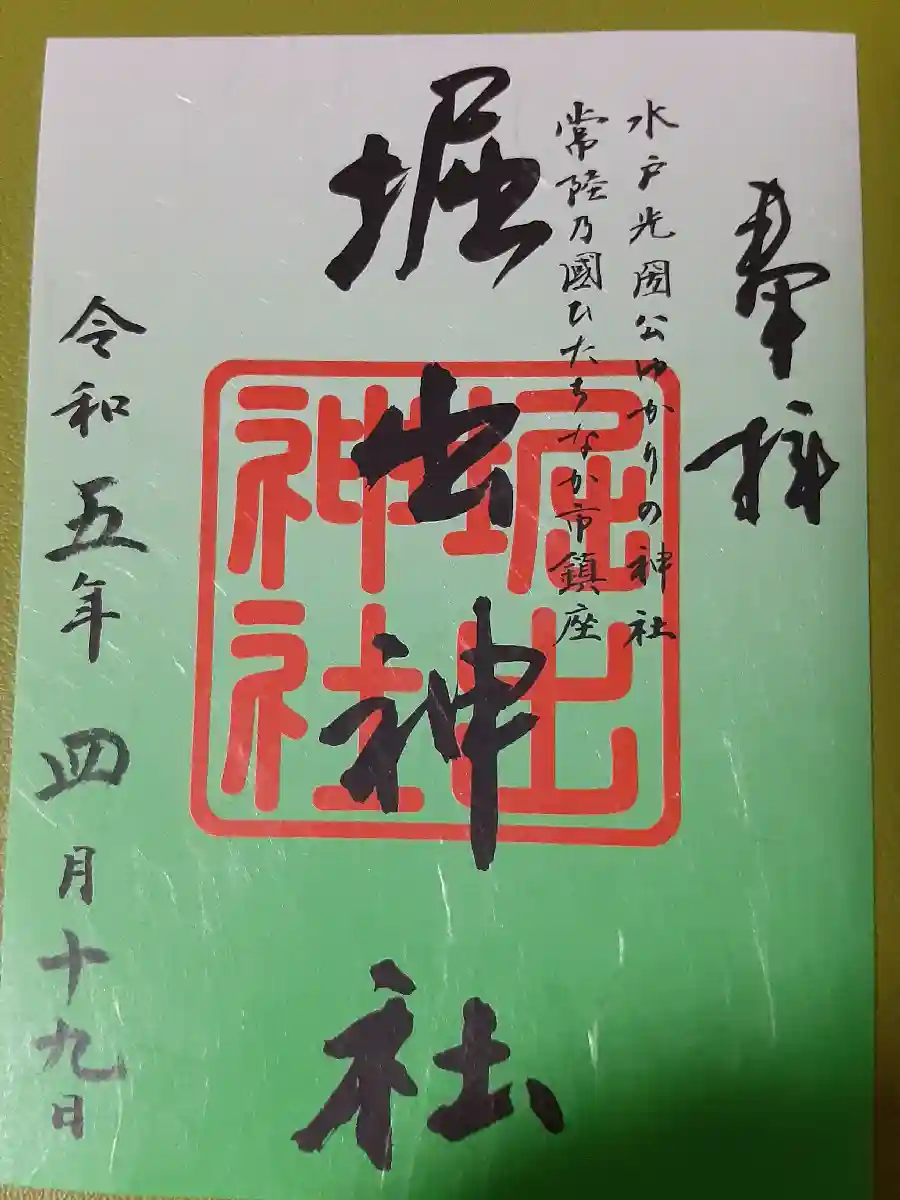 奉拝
水戸光圀公ゆかりの神社
常陸乃國ひたちなか市鎮座
堀出神社
堀出
神社
令和五年四月十九日